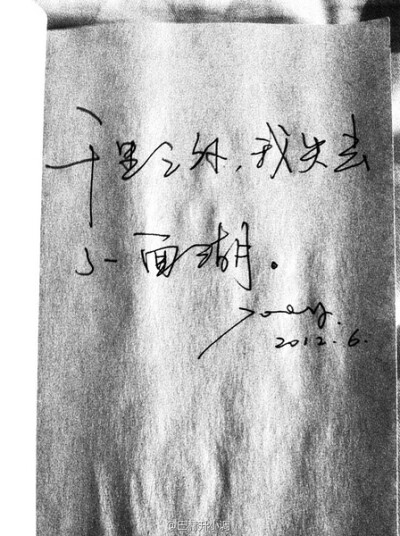 千里之外，我失去
了一面湖。
2012.6.